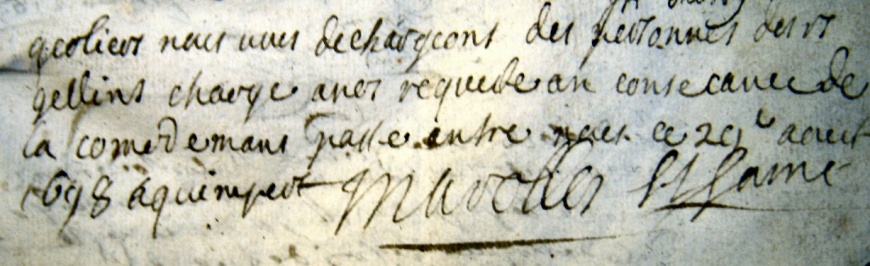 geoliers nous vous dechargeons des personnes des rs
gellins charge a nos requeste an consecance de
la comedemans passe entre nous ce 29e aout
1698 a quimper